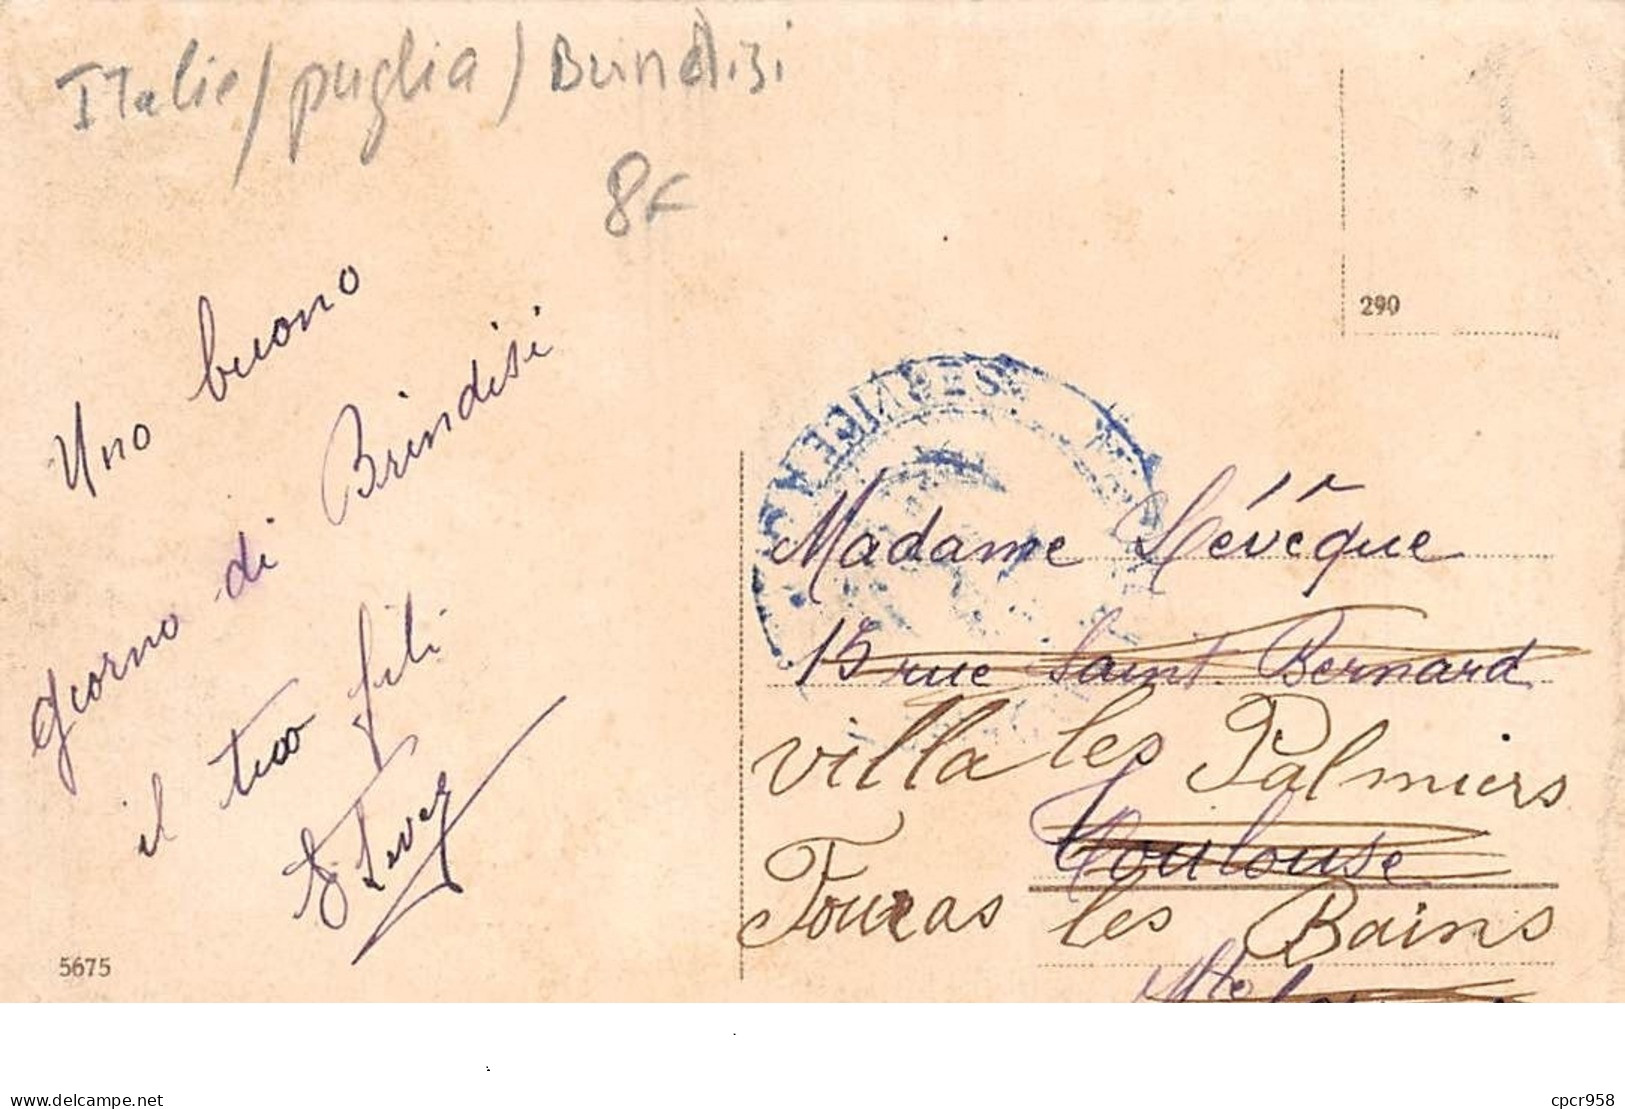 Italie / puglia / Brindisi
8€
290
Uno buono
giorno di Brindisi
il tuo fili
Madame Lévêque
15 rue Saint Bernard
villa les Palmiers
Toulouse
Fouras les Bains
Hte
5675
www.delcampe.net
cpcr958